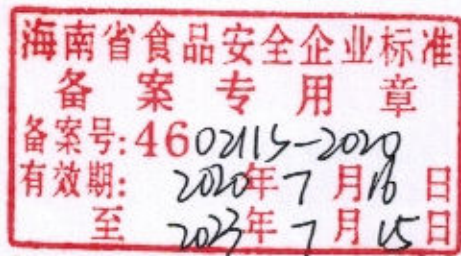 海南省食品安全企业标准
备案专用章
备案号:4602115-2020
有效期: 2020年7月16日
至 2023年7月15日